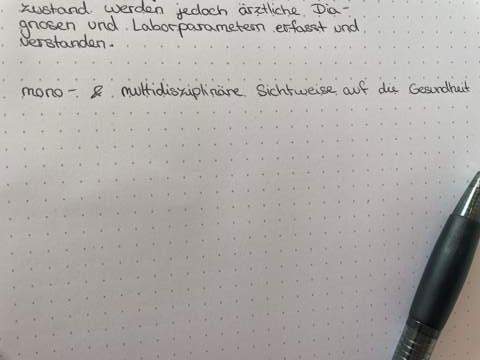 zustand werden jedoch ärztliche Dia-
gnosen und Laborparametern erfasst und
verstanden.
mono- & multidisziplinäre Sichtweise auf die Gesundheit